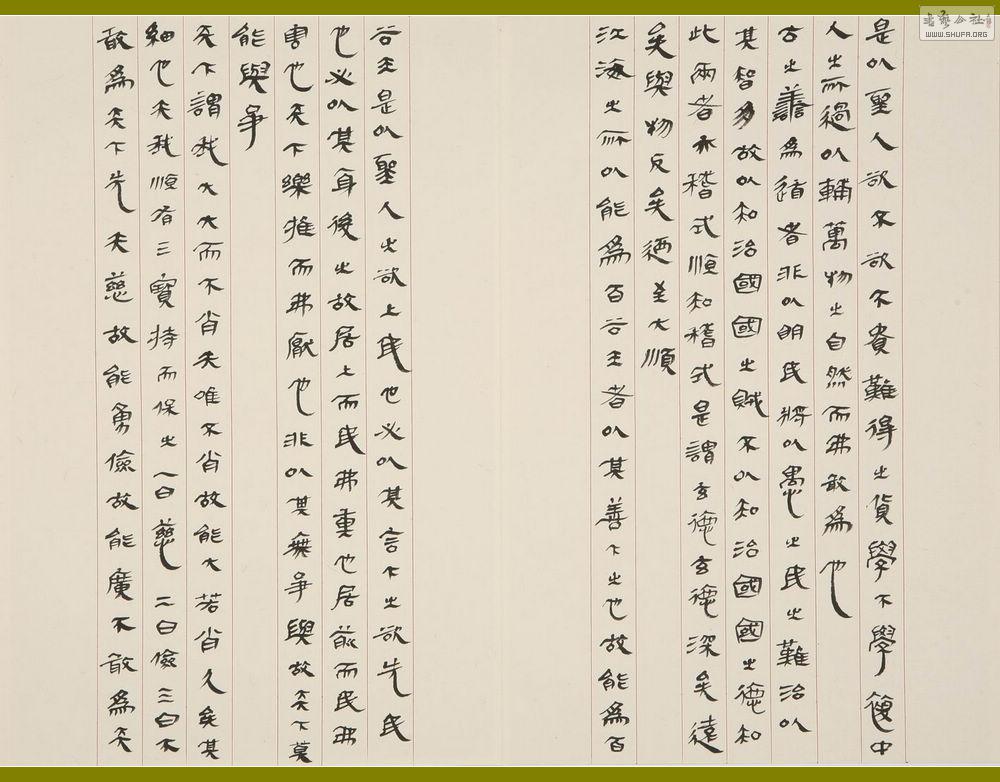 書藝公社
WWW.SHUFA.ORG
是以聖人欲不欲不貴難得之貨學不學復中
人之所過以輔萬物之自然而弗敢爲也
古之善爲道者非以明民將以愚之民之難治以
其智多故以知治國國之賊不以知治國國之德知
此兩者亦稽式順知稽式是謂玄德玄德深矣遠
矣與物反矣迺至大順
江海之所以能爲百谷王者以其善下之也故能爲百
谷王是以聖人之欲上民也必以其言下之欲先民
也必以其身後之故居上而民弗重也居前而民弗
害也天下樂推而弗厭也非以其無爭與故天下莫
能與爭
天下謂我大大而不肖夫唯不肖故能大若肖久矣其
細也夫我順有三寶持而保之一曰慈二曰儉三曰不
敢爲天下先夫慈故能勇儉故能廣不敢爲天